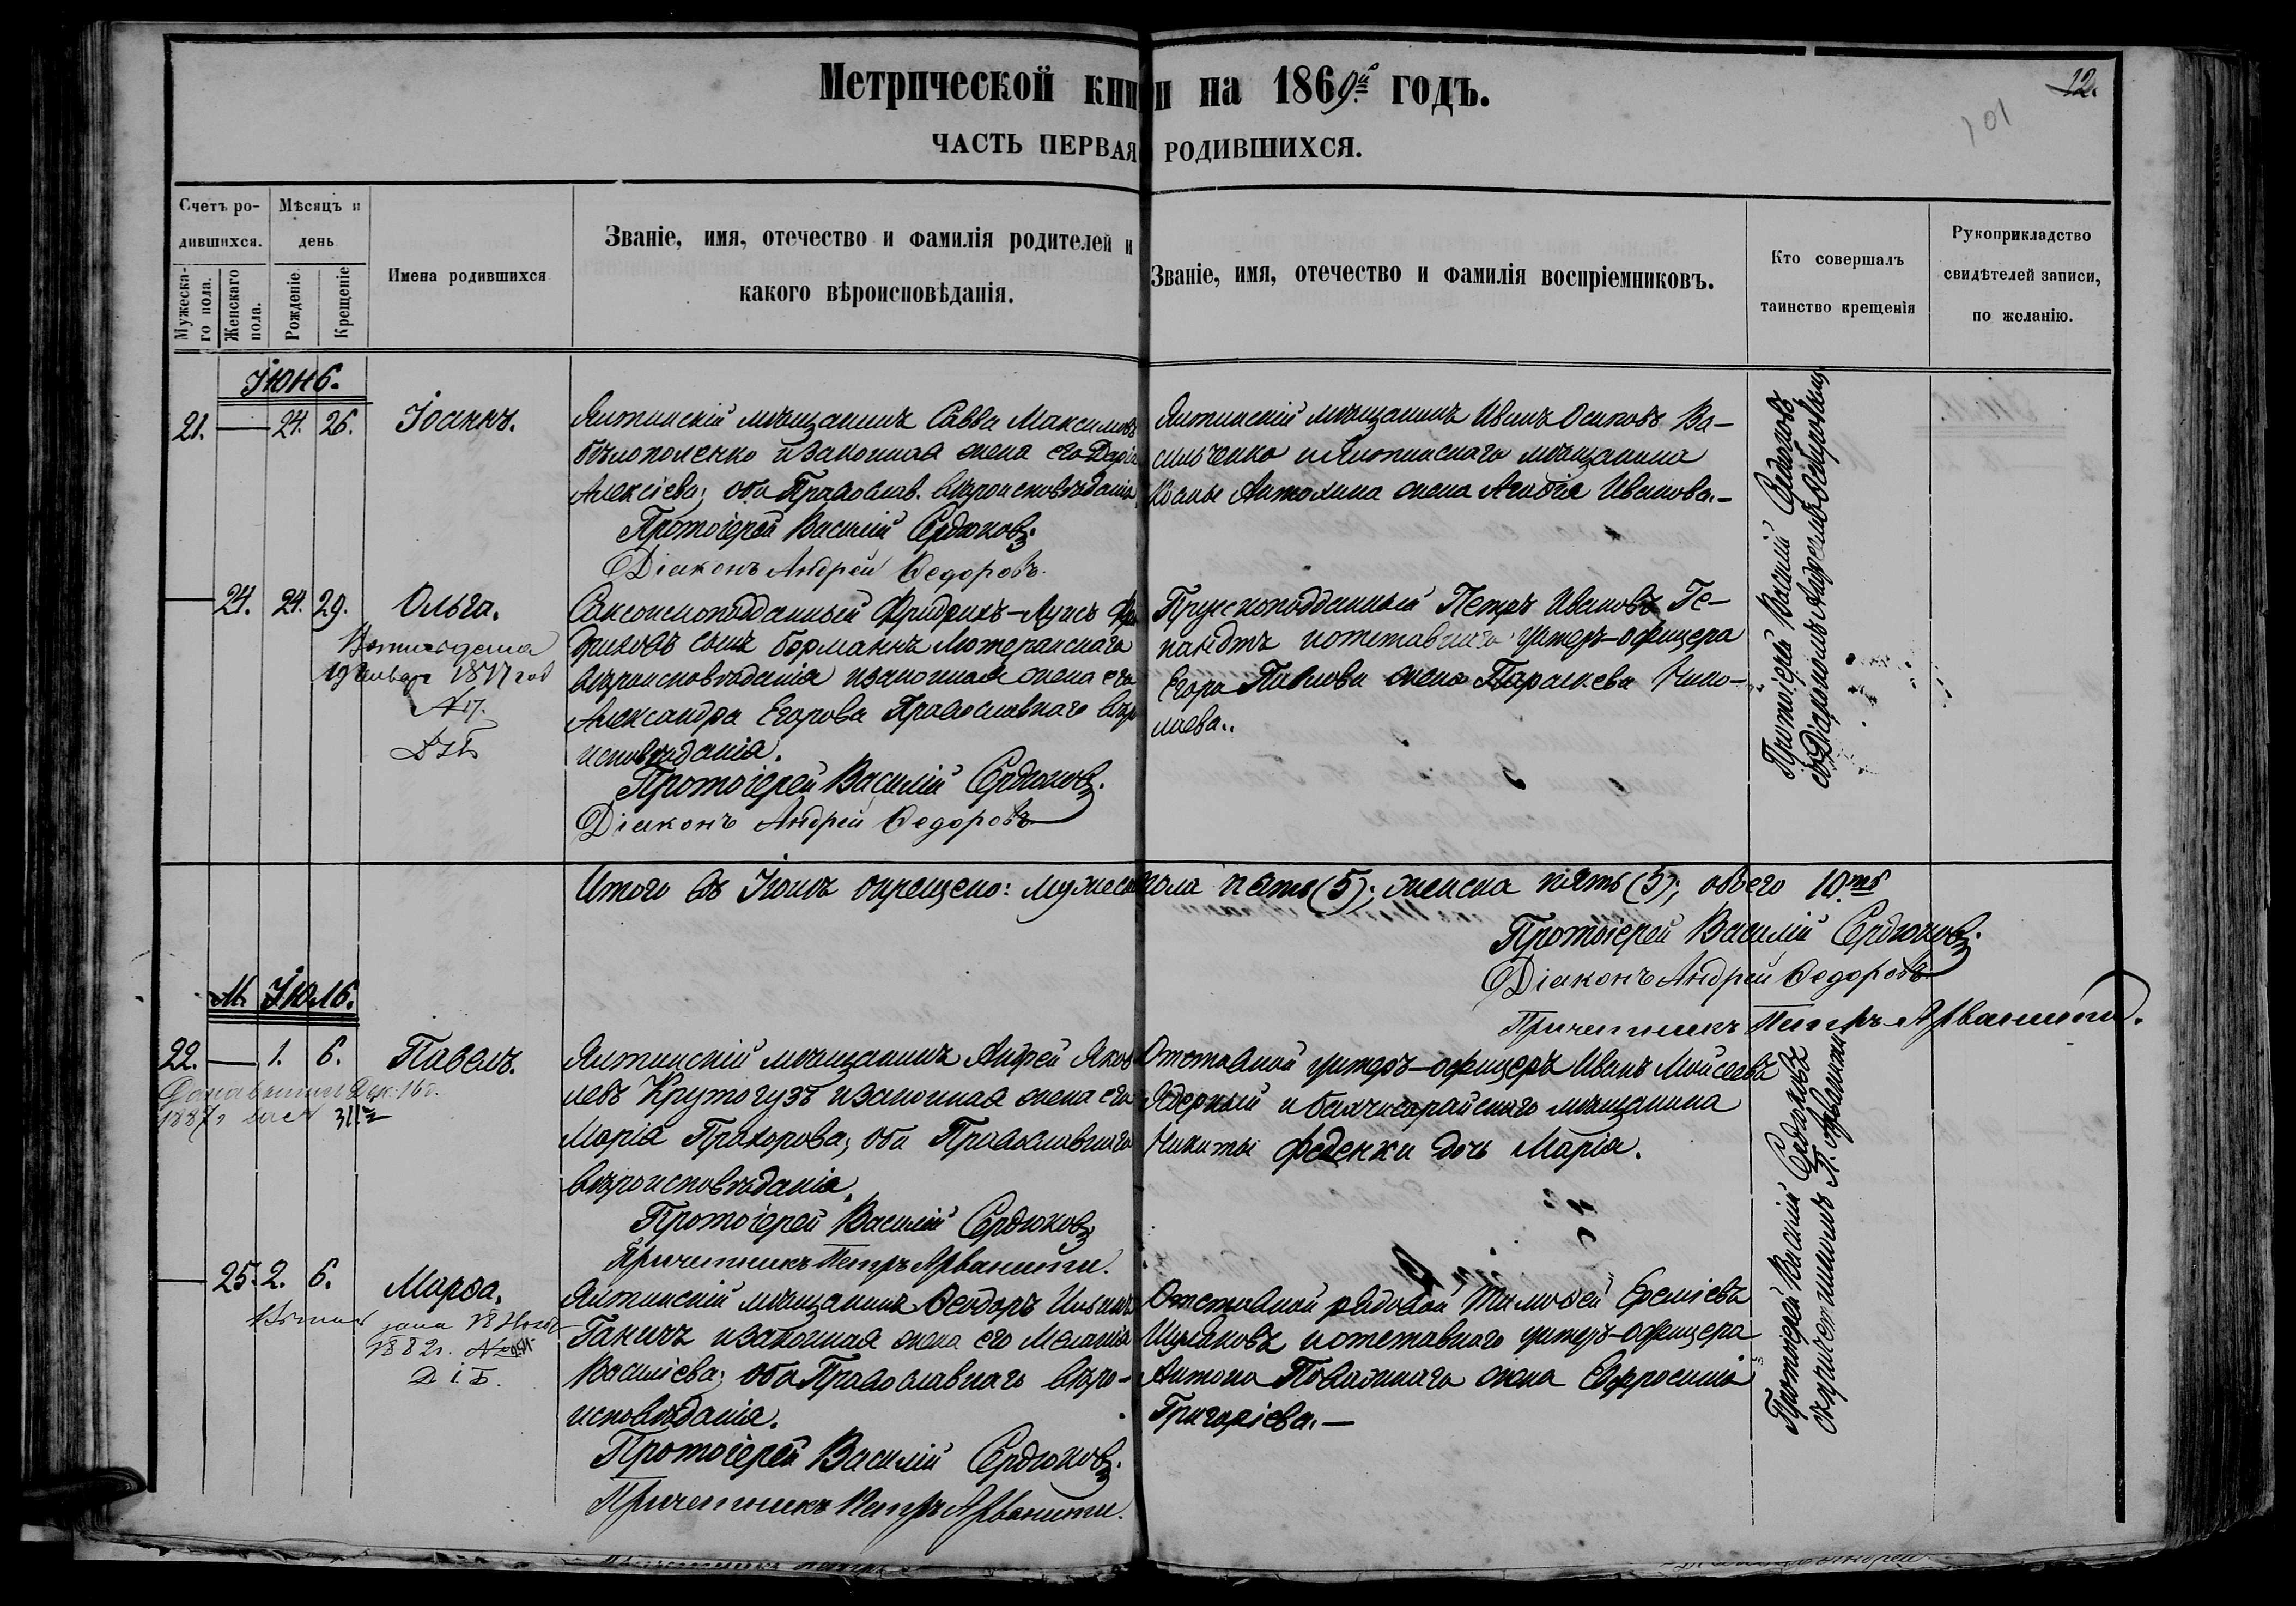 Метрической книги на 1869й годъ.
12.
101
ЧАСТЬ ПЕРВАЯ РОДИВШИХСЯ.
Счетъ родившихся.
Мужескаго пола.
Женскаго пола.
Мѣсяцъ и день
Рожденіе
Крещеніе
Имена родившихся
Званіе, имя, отечество и фамилія родителей и
какого вѣроисповѣданія.
Званіе, имя, отечество и фамилія воспріемниковъ.
Кто совершалъ
таинство крещенія
Рукоприкладство
свидѣтелей записи,
по желанію.
Іюнь.
21. — 24. 26. Іоаннъ.
Ялтинскій мѣщанинъ Савва Максимовъ
Бѣлополенко и законная жена его Дарія
Алексіева; оба Православ. вѣроисповѣданія
Протоіерей Василій Сердюковъ.
Діаконъ Андрей Ѳедоровъ.
Ялтинскій мѣщанинъ Иванъ Осиповъ Ва-
сильченко и Ялтинскаго мѣщанина
Космы Антонина жена Агаѳія Иванова.—
Протоіерей Василій Сердюковъ
съ Діакономъ Андреемъ Ѳедоровымъ
— 24. 24. 29. Ольга.
19 Января 1877 год
Саксонскоподданный Фридрихъ-Луисъ Фри
дриховъ сынъ Борманъ Лютеранскаго
вѣроисповѣданія и законная жена его
Александра Егорова Православнаго вѣро
исповѣданія.
Протоіерей Василій Сердюковъ.
Діаконъ Андрей Ѳедоровъ
Прускоподданный Петръ Ивановъ Ге-
и отставнаго унтеръ-офицера
Егора Павлова жена Параскева Нико-
лаева..
Итого въ Іюнѣ окрещено: мужеска пола пять (5); женска пять (5); обоего 10.ть
Протоіерей Василій Сердюковъ.
Діаконъ Андрей Ѳедоровъ
Причетникъ Петръ Арванити.
М. Іюль.
22. — 1. 6. Павелъ.
1887г
Ялтинскій мѣщанинъ Андрей Яков
левъ Крутогузъ и законная жена его
Марія Прохорова; оба Православнаго
вѣроисповѣданія.
Протоіерей Василій Сердюковъ
Причетникъ Петръ Арванити.
Отставной унтеръ-офицеръ Иванъ Мойсеевъ
Ядерный и бахчисарайскаго мѣщанина
Никиты Феденки дочь Марія.
Протоіерей Василій Сердюковъ
съ причетникомъ П. Арванити
— 25. 2. 6. Марѳа.
1882г.
Д. І. Б.
Ялтинскій мѣщанинъ Ѳеодоръ Ильинъ
Ганичъ и законная жена его Меланія
Василіева; оба Православнаго вѣро-
исповѣданія.
Протоіерей Василій Сердюковъ.
Причетникъ Петръ Арванити.
Отставной рядовой Тимоѳей Ереміевъ
и отставнаго унтеръ-офицера
Антона жена Евфросинія
Григоріева.—